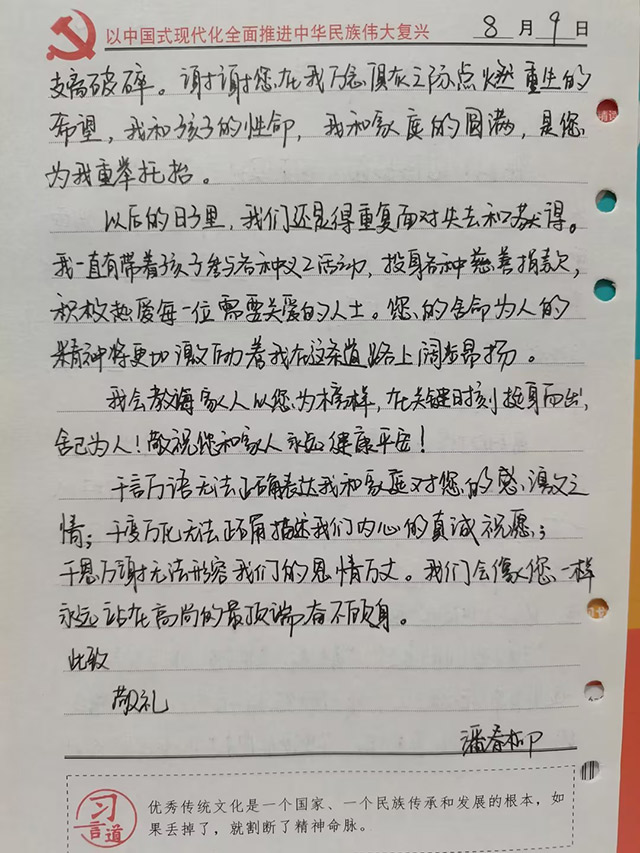 以中国式现代化全面推进中华民族伟大复兴 8月9日
支离破碎。谢谢您在我万念俱灰之际点燃重生的
希望，我和孩子的性命，我和家庭的圆满，是您
为我重举托抬。
以后的日子里，我们还是得重复面对失去和获得。
我一直有带着孩子参与各种义工活动，投身各种慈善捐款，
积极热爱每一位需要关爱的人士。您的舍命为人的
精神将更加激励着我在这条道路上阔步昂扬。
我会教诲家人以您为榜样，在关键时刻挺身而出，
舍己为人！敬祝您和家人永远健康平安！
千言万语无法正确表达我和家庭对您的感激之
情；千变万化无法正确描述我们内心的真诚祝愿；
千恩万谢无法形容我们的恩情万丈。我们会像您一样
永远站在高尚的最顶端奋不顾身。
此致
敬礼
潘春柳
习言道
优秀传统文化是一个国家、一个民族传承和发展的根本，如
果丢掉了，就割断了精神命脉。